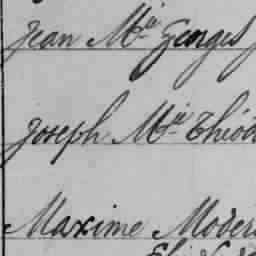 Jean Mie Georges
Joseph Mie Théod
Maxime Moder